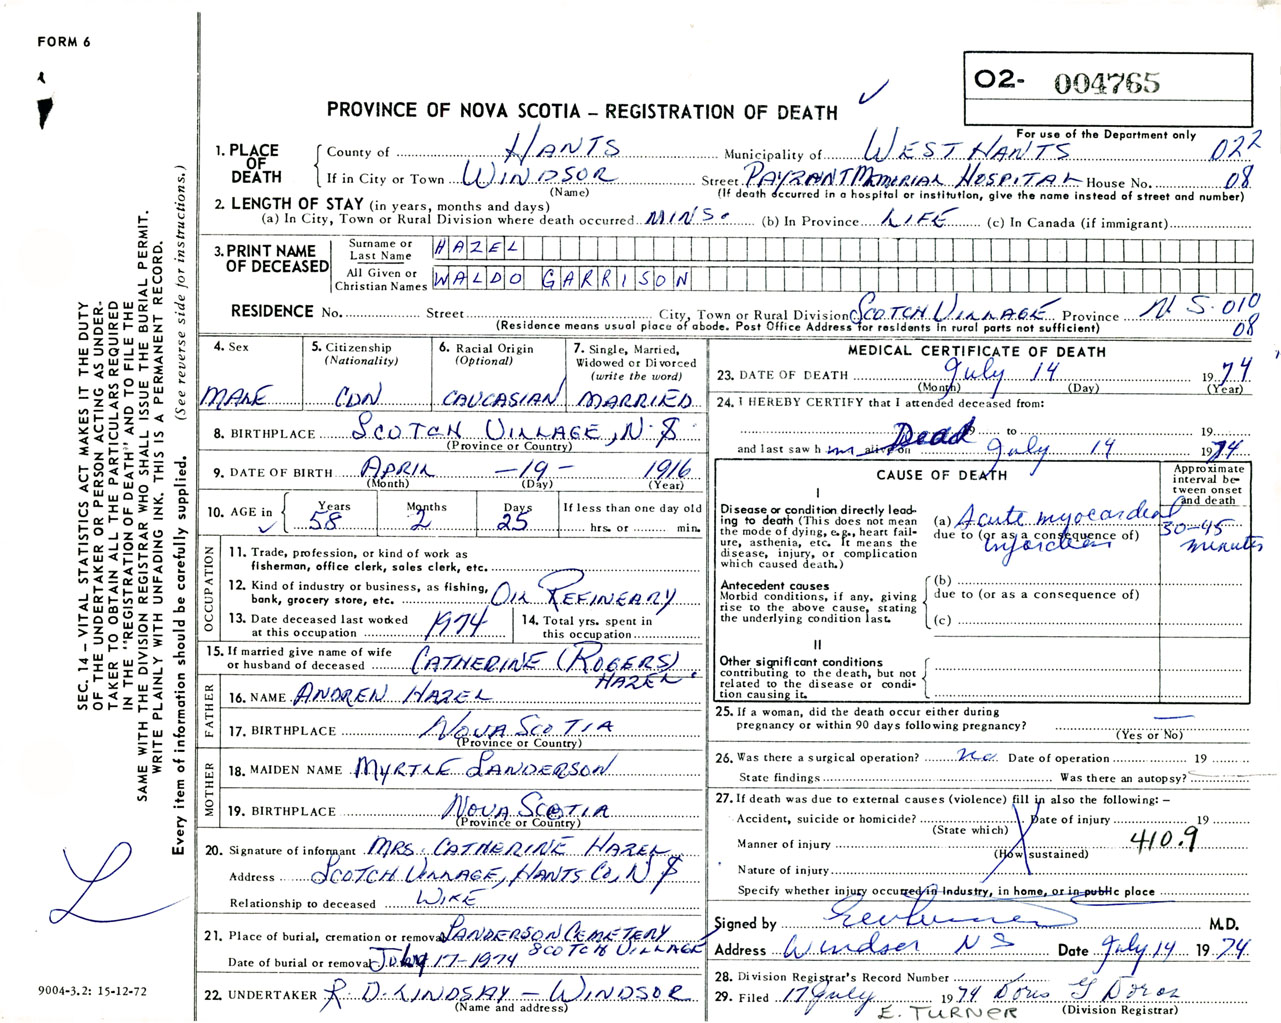 FORM 6
O2- 004765
PROVINCE OF NOVA SCOTIA – REGISTRATION OF DEATH
For use of the Department only
1. PLACE OF DEATH
County of HANTS Municipality of WEST HANTS 022
If in City or Town WINDSOR Street PAYZANT MEMORIAL HOSPITAL House No. 08
(Name) (If death occurred in a hospital or institution, give the name instead of street and number)
2. LENGTH OF STAY (in years, months and days)
(a) In City, Town or Rural Division where death occurred MINS. (b) In Province LIFE (c) In Canada (if immigrant)
3. PRINT NAME OF DECEASED
Surname or Last Name HAZEL
All Given or Christian Names WALDO GARRISON
RESIDENCE No. Street City, Town or Rural Division SCOTCH VILLAGE Province N.S. 010
(Residence means usual place of abode. Post Office Address for residents in rural parts not sufficient) 08
4. Sex MALE
5. Citizenship (Nationality) CDN
6. Racial Origin (Optional) CAUCASIAN
7. Single, Married, Widowed or Divorced (write the word) MARRIED
8. BIRTHPLACE SCOTCH VILLAGE, N.S
(Province or Country)
9. DATE OF BIRTH APRIL – 19 – 1916
(Month) (Day) (Year)
10. AGE in Years 58 Months 2 Days 25 If less than one day old hrs. or min.
OCCUPATION
11. Trade, profession, or kind of work as fisherman, office clerk, sales clerk, etc.
12. Kind of industry or business, as fishing, bank, grocery store, etc. OIL REFINEARY
13. Date deceased last worked at this occupation 1974
14. Total yrs. spent in this occupation
15. If married give name of wife or husband of deceased CATHERINE (ROGERS) HAZEL.
FATHER
16. NAME ANDREN HAZEL
17. BIRTHPLACE NOVA SCOTIA
(Province or Country)
MOTHER
18. MAIDEN NAME MYRTLE SANDERSON
19. BIRTHPLACE NOVA SCOTIA
(Province or Country)
20. Signature of informant MRS. CATHERINE HAZEL
Address SCOTCH VILLAGE, HANTS CO, N.S
Relationship to deceased WIFE
21. Place of burial, cremation or removal SANDERSON CEMETERY SCOTCH VILLAGE
Date of burial or removal July 17-1974
22. UNDERTAKER R. D. LINDSAY – WINDSOR
(Name and address)
MEDICAL CERTIFICATE OF DEATH
23. DATE OF DEATH July 14 1974
(Month) (Day) (Year)
24. I HEREBY CERTIFY that I attended deceased from:
19 to 19
and last saw h im alive on Dead July 14 1974
CAUSE OF DEATH
Approximate interval between onset and death
I
Disease or condition directly leading to death (This does not mean the mode of dying, e.g., heart failure, asthenia, etc. It means the disease, injury, or complication which caused death.)
(a) Acute myocardial 30-45
due to (or as a consequence of) minutes
Antecedent causes
Morbid conditions, if any, giving rise to the above cause, stating the underlying condition last.
(b)
due to (or as a consequence of)
(c)
II
Other significant conditions contributing to the death, but not related to the disease or condition causing it.
25. If a woman, did the death occur either during pregnancy or within 90 days following pregnancy? —
(Yes or No)
26. Was there a surgical operation? no. Date of operation 19
State findings Was there an autopsy?
27. If death was due to external causes (violence) fill in also the following: –
Accident, suicide or homicide? Date of injury 19
(State which)
Manner of injury 410.9
(How sustained)
Nature of injury
Specify whether injury occurred in Industry, in home, or in public place
Signed by M.D.
Address Windsor NS Date July 14 1974
28. Division Registrar's Record Number
29. Filed 17 July 1974 Doris G
(Division Registrar)
E. TURNER
SEC. 14 – VITAL STATISTICS ACT MAKES IT THE DUTY
OF THE UNDERTAKER OR PERSON ACTING AS UNDER-
TAKER TO OBTAIN ALL THE PARTICULARS REQUIRED
IN THE "REGISTRATION OF DEATH" AND TO FILE THE
SAME WITH THE DIVISION REGISTRAR WHO SHALL ISSUE THE BURIAL PERMIT.
WRITE PLAINLY WITH UNFADING INK. THIS IS A PERMANENT RECORD.
Every item of information should be carefully supplied. (See reverse side for instructions.)
9004-3.2: 15-12-72